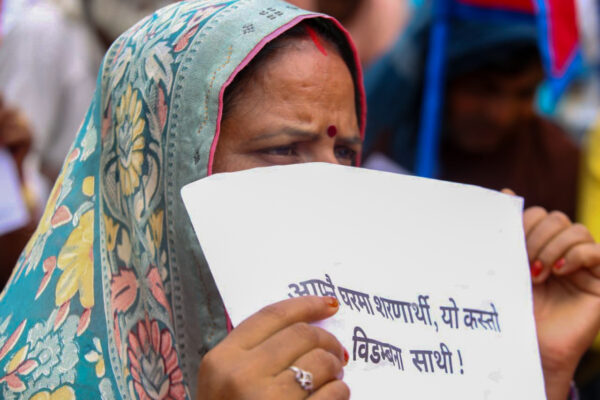 आफ्नै घरमा शरणार्थी, यो कस्तो
विडम्बना साथी !